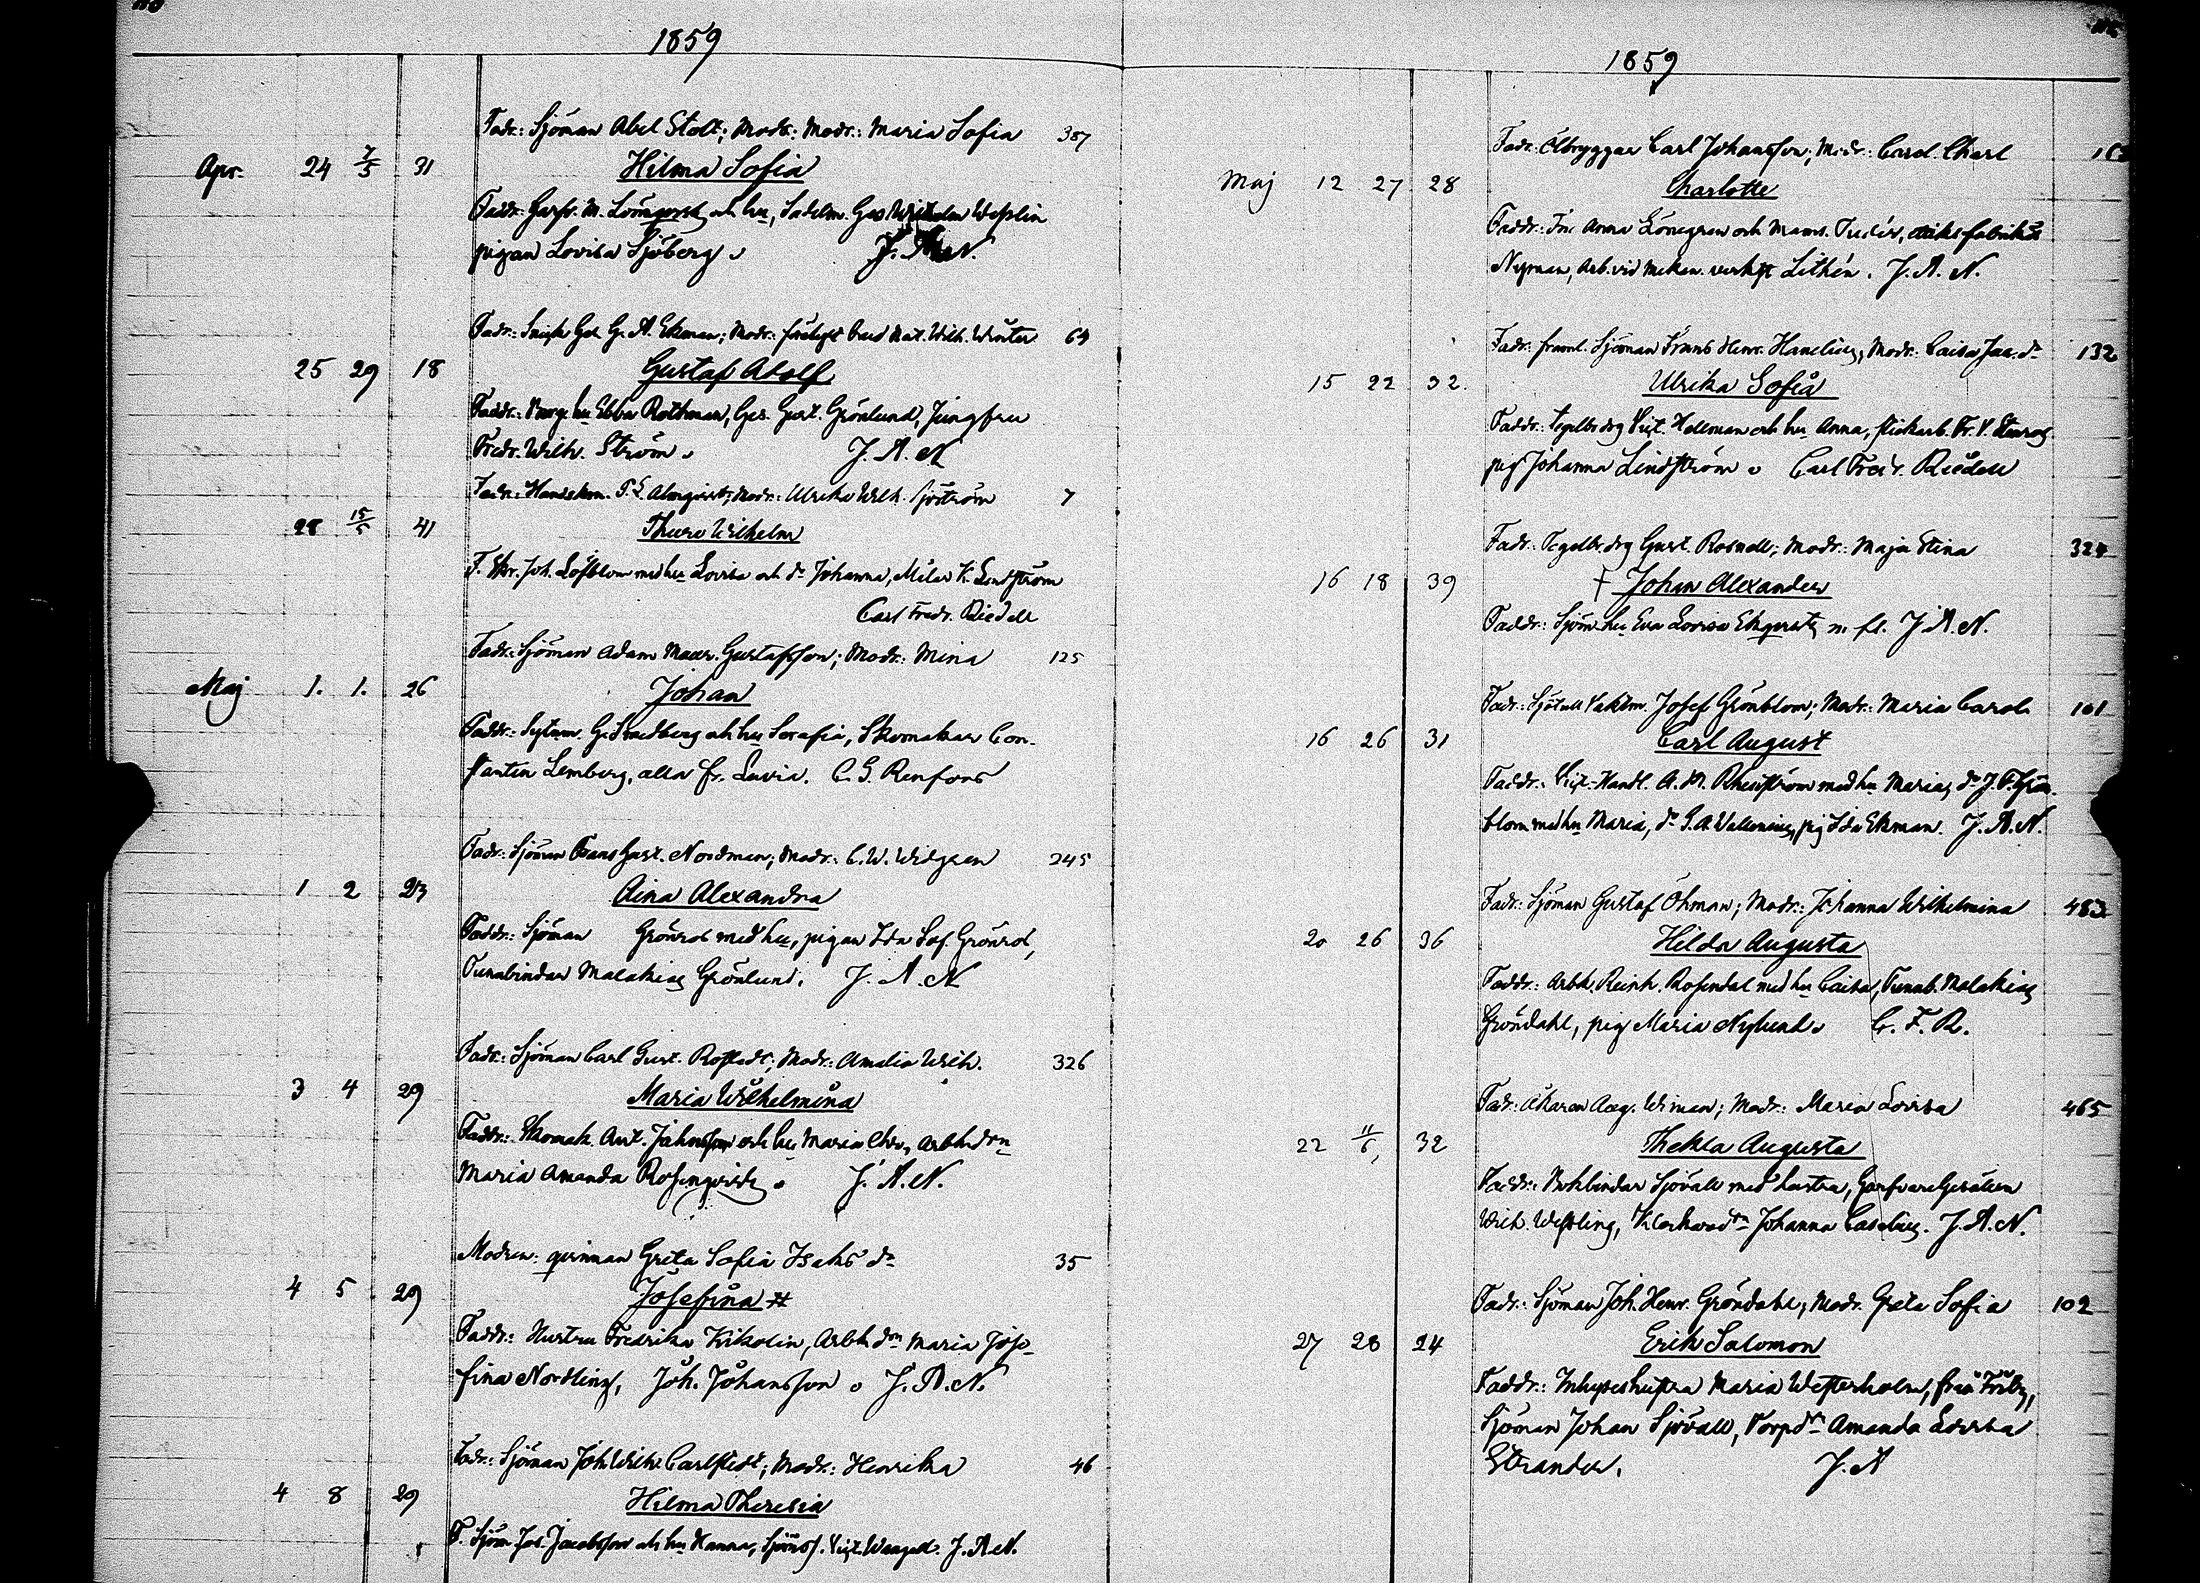 1859
Fadr: Sjöman Abel Stolt; Modr: Modr: Maria Sofia 387
Apr. 24 7/5 31 Hilma Sofia
Faddr: Garfv. M. Lönnqvist och hu, Sadelm. Ges. Wilhelm Wesslin
pigan Lovisa Sjöberg. J. A. N.
Fadr: Snick. Ges. G. A. Ekman; Modr: Nat. Wilh. Winter 64
25 29 18 Gustaf Adolf
Faddr: hu Ebba Rothman, Ges. Gust. Grönlund, Jungfru
Fredr. Wilh. Ström. J. A. N
Fadr: Handskm. Almqvist; Modr: Ulrika Wilh. Sjöström 7
28 15/5 41 Thure Wilhelm
F. Skr. Joh. Löfblom med hu Lovisa och dr Johanna, K. Lindström
Carl Fredr. Riedell
Fadr: Sjöman Adam Maur. Gustafsson; Modr: Mina 125
Maj 1. 1. 26 Johan
Faddr: G. Smedberg och hu Serafia, Skomakar Con-
stantin Lemberg, alla fr. Luvia. C. G. Renfors
Fadr: Sjöman Frans Gust. Nordman; Modr: C. W. Widgren 245
1 2 23 Aina Alexandra
Faddr: Sjöman Grönros med hu, pigan Ida Sof. Grönros,
Tunnbindar Malakias Grönlund. J. A. N
Fadr: Sjöman Carl Gust. Rostedt; Modr: Amalia Wilh. 326
3 4 29 Maria Wilhelmina
Faddr: Skomak. Ant. Johnsson och hu Maria Chr., Arbk. drn
Maria Amanda Rosenqvist. J. A. N.
Modren: qvinnan Greta Sofia Isaks dr 35
4 5 29 Josefina #
Faddr: Hustru Fredrika Kikolin, Arbk. drn Maria Jose-
fina Nordling, Joh. Johansson. J. A. N.
Fadr: Sjöman Joh. Wilh. Carlstedt; Modr: Henrika 46
4 8 29 Hilma Theresia
F. Sjöm. Jos. Jacobsson och hu Hanna, J. A. N.
1859
Fadr: Ölbryggar Carl Johansson; Modr: Carol. Charl
Maj 12 27 28 Charlotte
Faddr: Fru Anna Lönegren och Mams.
Nyman, Arb. vid Mekan. verkst Lithén. J. A. N.
Fadr: Sjöman Frans Henr. Hanelius, Modr: Caisa Jac. dr 132
15 22 32. Ulrika Sofia
Faddr: Tegelbr. drg Vict. Hellman och hu Anna,
pig Johanna Lindström. Carl Fredr. Riedell
Fadr: Tegelbr. drg Gust. Rosnell; Modr: Maja Stina 324
16 18 39 † Johan Alexander
Faddr: Sjöm. hu Eva Lovisa Ekqvist m. fl. J. A. N.
Fadr: Sjötull Vaktm. Josef Grönblom; Modr: Maria Carol. 101
16 26 31 Carl August
Faddr: Vict. Handl. A. M. Rhenström med hu Maria, dr J. F. Grön-
blom med hu Maria, dr G. A. Wallenius, pig Ida Ekman. J. A. N.
Fadr: Sjöman Gustaf Öhman; Modr: Johanna Wilhelmina 483
20 26 36 Hilda Augusta
Faddr: Arbk. Reinh. Rosendal med hu Caisa, Tunnb. Malakias
Gröndahl, pig Maria Nylund. C. F. R.
Fadr: Åkaren Aug. Wiman; Modr: Maria Lovisa 465
22 11/6 32 Thekla Augusta
Faddr: Bokbindar Sjövall med hustru, Garfvare Gesällen
Wilh. Wessling, Klockare dtr Johanna Caselius. J. A. N.
Fadr: Sjöman Joh. Henr. Gröndahl; Modr. Greta Sofia 102
27 28 24 Erik Salomon
Faddr: Inhyseshustru Maria Westerholm, från
Sjöman Johan Sjövall, Torpdtr Amanda Lovisa
Strander. J. A